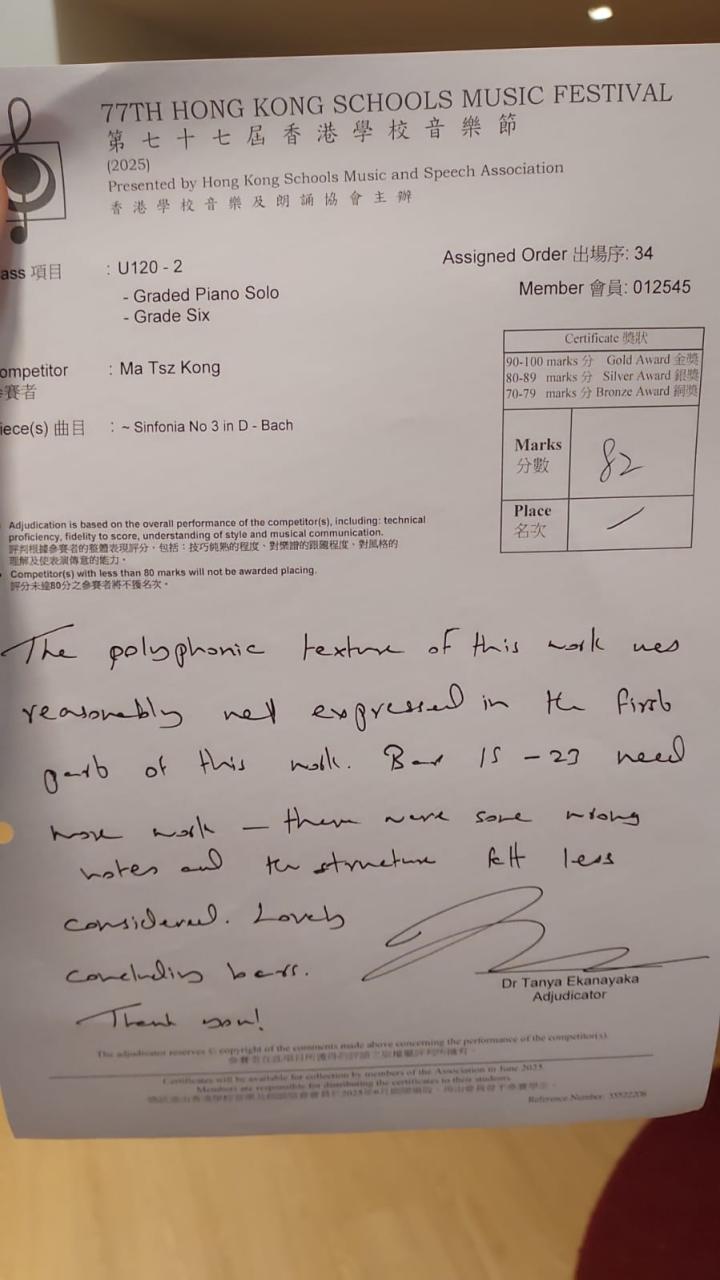 77TH HONG KONG SCHOOLS MUSIC FESTIVAL
第七十七屆香港學校音樂節
(2025)
Presented by Hong Kong Schools Music and Speech Association
香港學校音樂及朗誦協會主辦
ass 項目 : U120 - 2
- Graded Piano Solo
- Grade Six
Assigned Order 出場序: 34
Member 會員: 012545
ompetitor : Ma Tsz Kong
參賽者
iece(s) 曲目 : ~ Sinfonia No 3 in D - Bach
Certificate 獎狀
90-100 marks 分 Gold Award 金獎
80-89 marks 分 Silver Award 銀獎
70-79 marks 分 Bronze Award 銅獎
Marks 82
分數
Place /
名次
Adjudication is based on the overall performance of the competitor(s), including: technical
proficiency, fidelity to score, understanding of style and musical communication.
評判根據參賽者的整體表現評分，包括：技巧純熟的程度、對樂譜的跟隨程度、對風格的
理解及使表演傳意的能力。
Competitor(s) with less than 80 marks will not be awarded placing.
評分未達80分之參賽者將不獲名次。
The polyphonic texture of this work was
reasonably well expressed in the first
part of this work. Bar 15 - 23 need
more work — there were some wrong
notes and the structure felt less
considered. Lovely
concluding bars.
Thank you!
Dr Tanya Ekanayaka
Adjudicator
The adjudicator reserves © copyright of the comments made above concerning the performance of the competitor(s).
Certificates will be available for collection by members of the Association in June 2025.
Members are responsible for distributing the certificates to their students.
Reference Number: 35522206